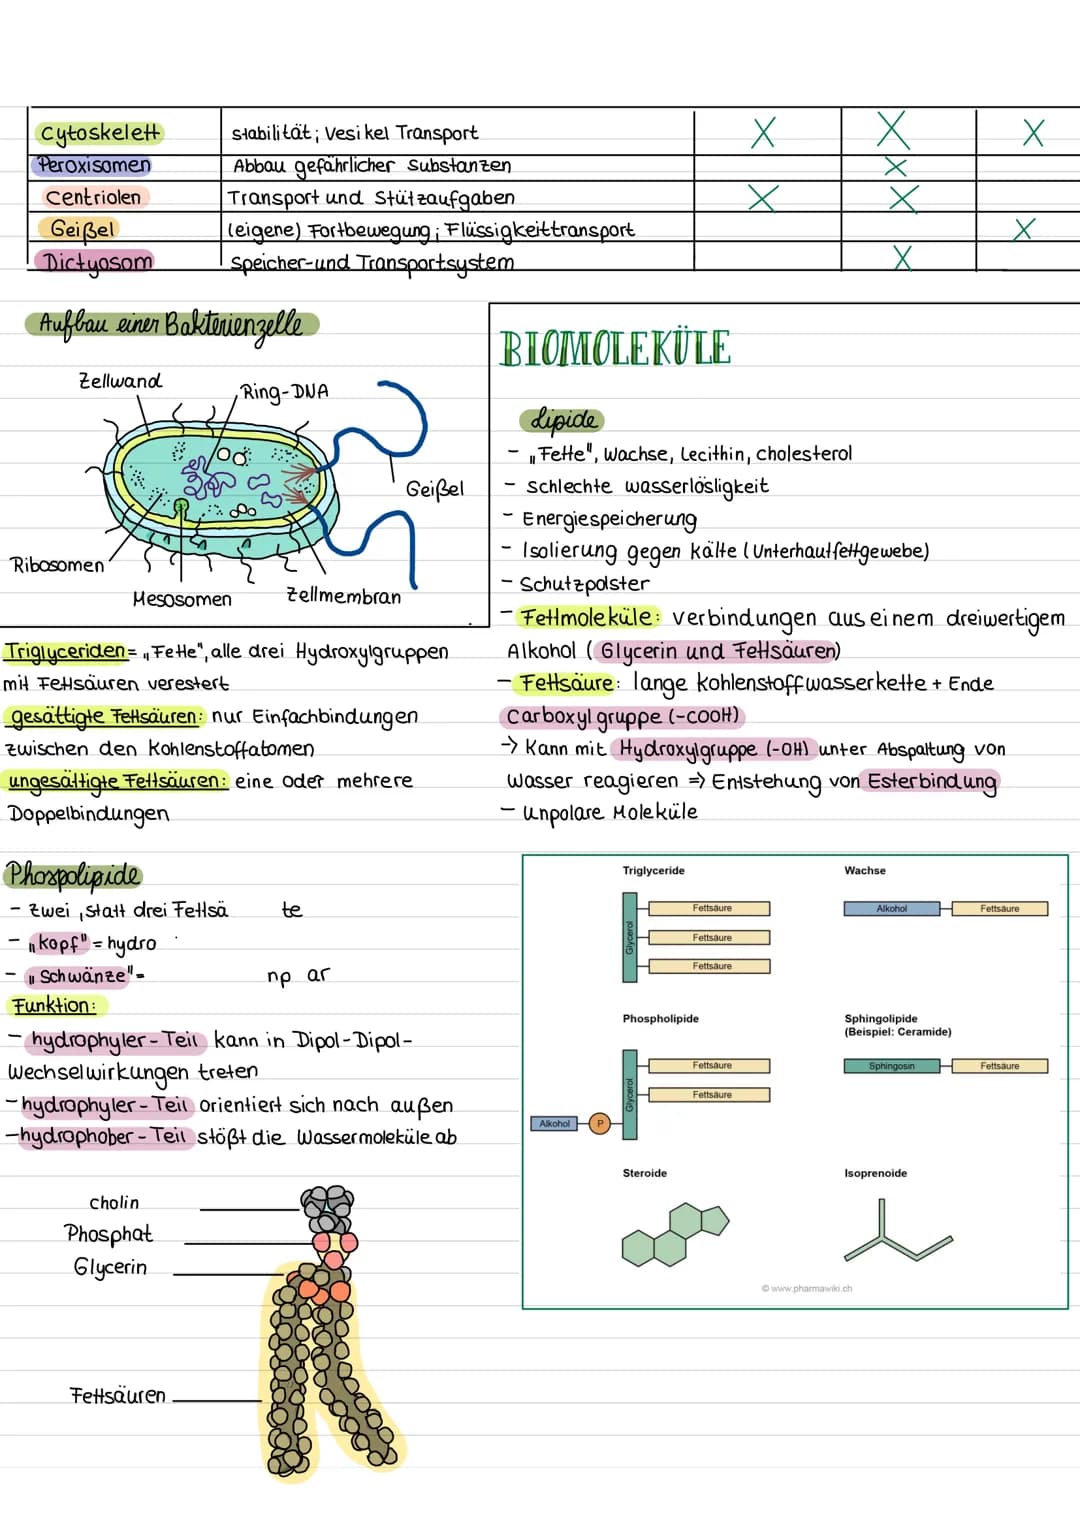 Cytoskelett stabilität; Vesikel Transport X X X
Peroxisomen Abbau gefährlicher Substanzen X
Centriolen Transport und Stützaufgaben X X
Geißel (eigene) Fortbewegung; Flüssigkeittransport X
Dictyosom speicher-und Transportsystem X
Aufbau einer Bakterienzelle
Zellwand
Ring-DNA
Geißel
Ribosomen
Mesosomen
Zellmembran
BIOMOLEKÜLE
Lipide
- „Fette", Wachse, Lecithin, cholesterol
- schlechte wasserlösligkeit
- Energiespeicherung
- Isolierung gegen kälte (Unterhautfettgewebe)
- Schutzpolster
- Fettmoleküle: verbindungen aus einem dreiwertigem
Alkohol (Glycerin und Fettsäuren)
- Fettsäure: lange kohlenstoffwasserkette + Ende
Carboxylgruppe (-COOH)
-> Kann mit Hydroxylgruppe (-OH) unter Abspaltung von
Wasser reagieren => Entstehung von Esterbindung
- Unpolare Moleküle
Triglyceriden= „Fette", alle drei Hydroxylgruppen
mit Fettsäuren verestert
gesättigte Fettsäuren: nur Einfachbindungen
zwischen den Kohlenstoffatomen
ungesättigte Fettsäuren: eine oder mehrere
Doppelbindungen
Phospolipide
- Zwei, statt drei Fettsä te
- „Kopf" = hydro
- „Schwänze" = np ar
Funktion:
- hydrophyler-Teil kann in Dipol-Dipol-
Wechselwirkungen treten
- hydrophyler-Teil orientiert sich nach außen
- hydrophober-Teil stößt die Wassermoleküle ab
Cholin
Phosphat
Glycerin
Fettsäuren
Triglyceride
Glycerol
Fettsäure
Fettsäure
Fettsäure
Wachse
Alkohol Fettsäure
Phospholipide
Glycerol
Fettsäure
Fettsäure
Alkohol P
Sphingolipide
(Beispiel: Ceramide)
Sphingosin Fettsäure
Steroide
Isoprenoide
© www.pharmawiki.ch